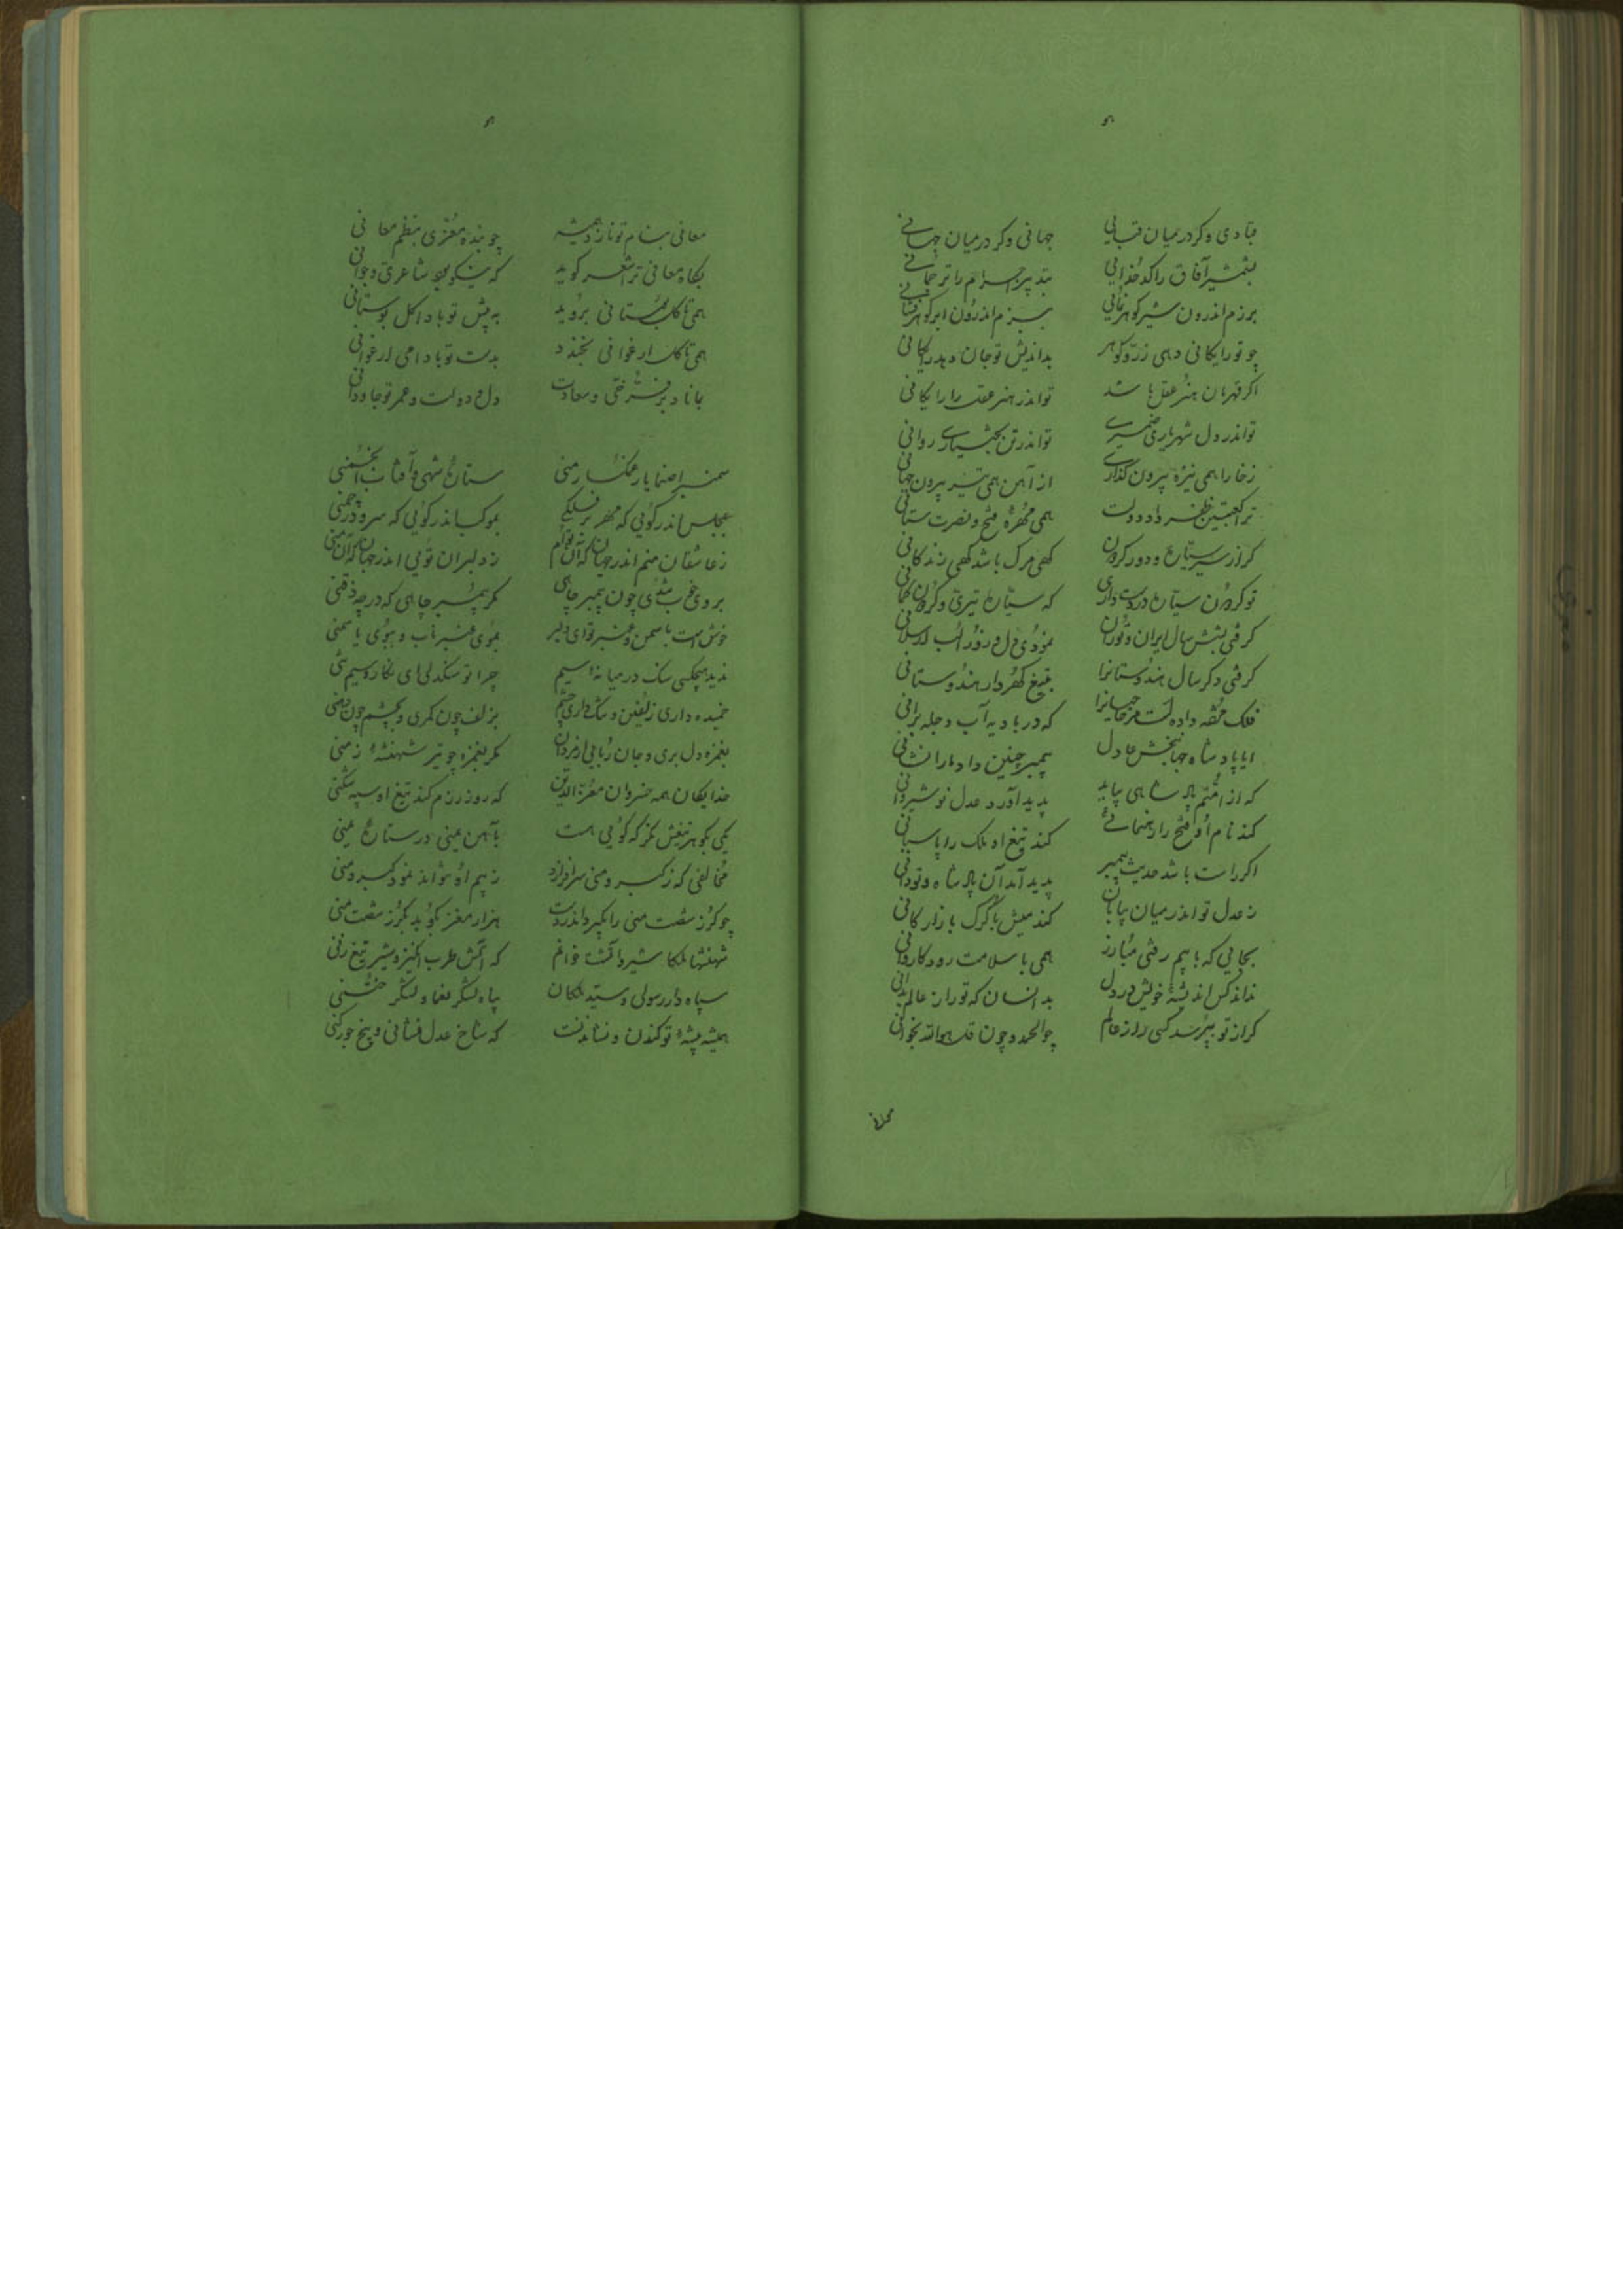 قبادی وگر در میان قبایی جهانی وگر در میان جهانی
بشمشیر آفاق را کدخدائی بتدبیر اجرام را ترجمانی
برزم اندرون شیر گوهرنمائی ببزم اندرون ابر گوهرفشانی
چو تو رایگانی دهی زر و گوهر بداندیش تو جان دهد رایگانی
اگر قهرمان هنر عقل باشد تو اندر هنر عقل را رایگانی
تو اندر دل شهریاری ضمیری تو اندر تن بختیاری روانی
زخارا همی نیزه بیرون گذاری از آهن همی تیر بیرون جهانی
ترا کعبتین ظفر داد دولت همی مهره فتح و نصرت ستانی
گر از سیر ستاره و دور گردون گهی مرگ باشد گهی زندگانی
تو گردون ستاره در دست داری که ستاره تیری و گردون کمانی
گرفتی بشش سال ایران و توران نمودی دل و زور الب ارسلانی
گرفتی دگر سال هندوستانرا بتیغ گهردار هندوستانی
فلک حقه داده است مر حاجیانرا که در بادیه آب دجله برانی
ایا پادشاه جهانبخش عادل پیمبر چنین داد ما را نشانی
که از امتم پادشاهی بیاید پدید آورد عدل نوشیروانی
کند نام او فتح را رهنمائی کند تیغ او ملک را پاسبانی
اگر راست باشد حدیث پیمبر پدید آمد آن پادشاه و تو دانی
ز عدل تو اندر میان بیابان کند میش با گرگ بازارگانی
بجایی که با بیم رفتی مبارز همی با سلامت رود کاروانی
نداند کس اندیشه خویش در دل بدانسان که تو راز عالم بدانی
گر از تو بپرسد کسی راز عالم چو الحمد و چون قل هو الله بخوانی
معانی بنام تو نازد همیشه چو بنده معزی بنظم معانی
بگاه معانی ترا شعر گوید که نیکو بود شاعری و جوانی
همی تا گل بوستانی بروید به پیش تو بادا گل بوستانی
همی تا گل ارغوانی بخندد بدست تو بادا می ارغوانی
بماناد بر فرخی و سعادت دل و دولت و عمر تو جاودانی
سمنبرا صنما یار غمگسار منی ستاره شهی و آفتاب انجمنی
بمجلس اندر گوئی که مهر بر فلکی بموکب اندر گوئی که سرو در چمنی
ز عاشقان منم اندر جهان که آن توام ز دلبران توئی اندر جهان که آن منی
بروی خوب شدی چون پیمبر چاهی مگر پیمبر چاهی که در چه ذقنی
خوش است با سمن و عنبر تو ای دلبر بموی عنبر ناب و ببوی یاسمنی
ندید هیچکسی سنگ در میانه سیم چرا تو سنگدلی ای نگار و سیم تنی
خمیده داری زلفین و تنگ داری چشم بزلف چون کمری و بچشم چون دهنی
بغمزه دل بری و جان ربایی از مردان مگر بغمزه چو تیر شهنشه زمنی
خدایگان همه خسروان معز الدین که روز رزم کند تیغ او سپه شکنی
یکی بگوهر تیغش نگر که گوئی هست بآهن یمنی در ستاره یمنی
مخالفی که ز کبر و منی سرافرازد ز بیم او نتواند نمود کبر و منی
چو گرز شصت منی را بگیرد اندر دست هزار مغز بکوبد بگرز شصت منی
شهنشها ملکا شیر و آفتاب خوانم که آتش طرب انگیز و شیر تیغ زنی
سپاه دار رسولی و سید ملکان پناه لشکر یغما و لشکر ختنی
همیشه پیشه تو کندن و نشاندنست که شاخ عدل نشانی و بیخ جور کنی